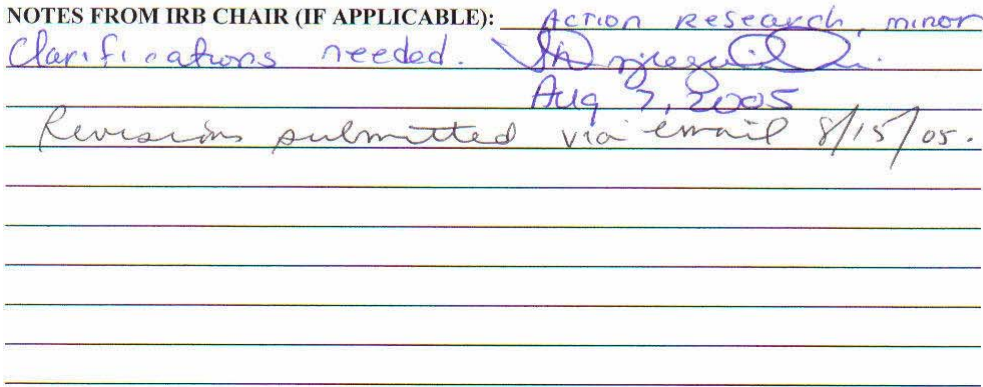 NOTES FROM IRB CHAIR (IF APPLICABLE): Action Research, minor
Clarifications needed.
Aug 7, 2005
Revisions submitted via email 8/15/05.